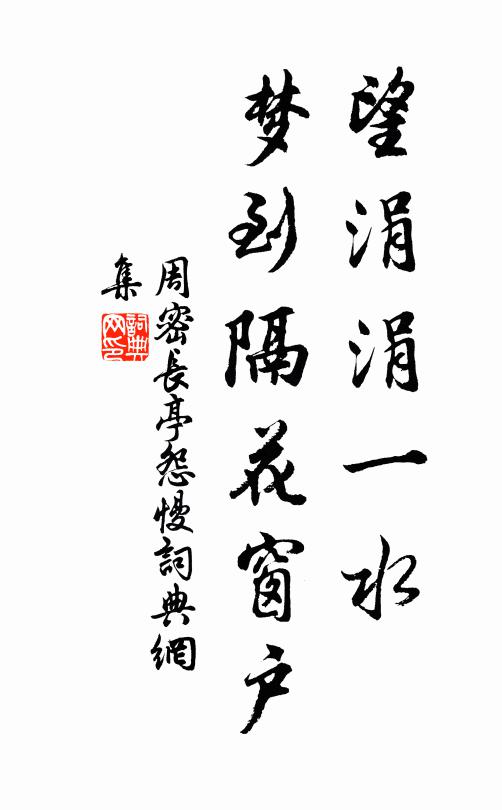 望涓涓一水
梦到隔花窗户
周密長亭怨慢詞典網
集
詞典網印